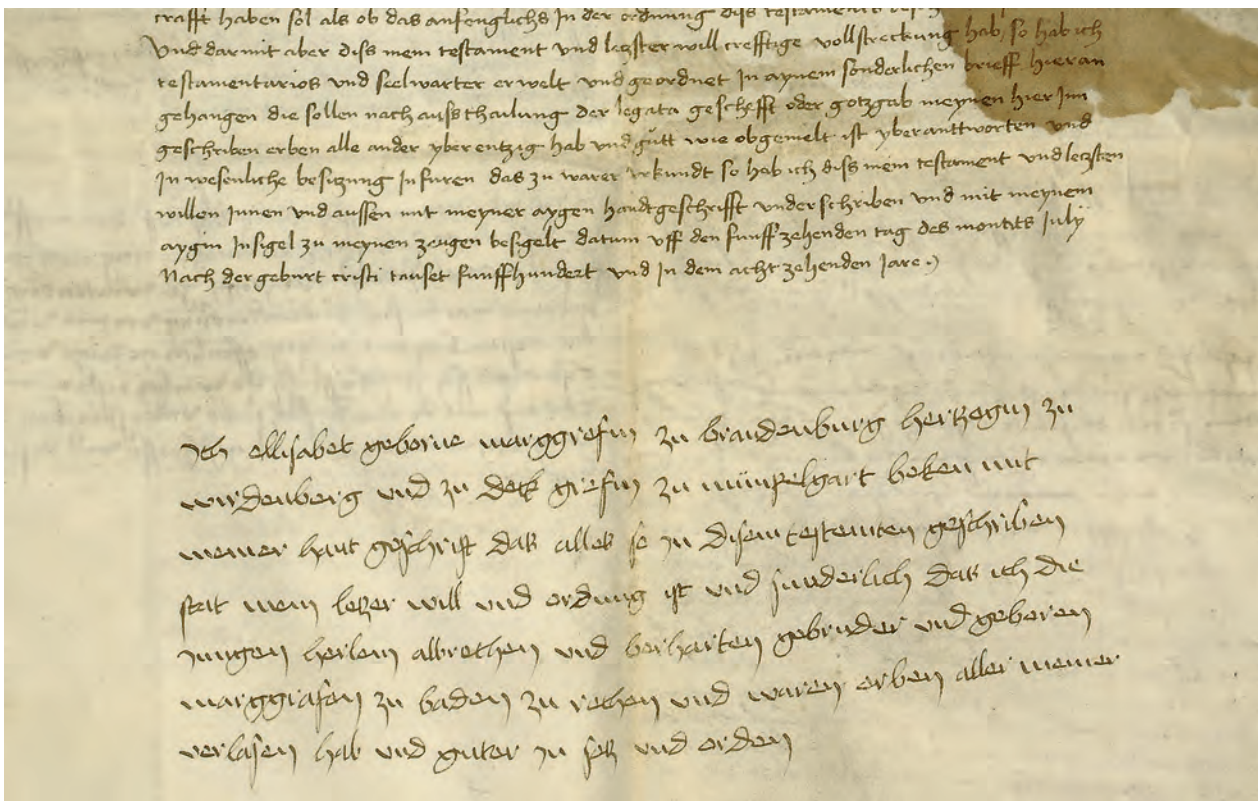 crafft haben sol als ob das anfenglichs In der ordnung diss testaments
Vnd darmit aber diss mein testament vnd letzster will crefftige vollstreckung hab, so hab ich
testamentarios vnd seelwarter erwelt vnd geordnet In aynem sonderlichen brieff hieran
gehangen die sollen nach aussthailung der legata geschefft oder gotzgab meynen hier Inn
geschriben erben alle ander yberentzig hab vnd gutt wie obgemelt ist yberanttworten vnd
In wesenliche besitzung Infuren das zu warer vrkundt so hab ich diss mein testament vnd letzsten
willen Innen vnd aussen mit meyner aygen handtgeschrifft vnderschriben vnd mit meynem
aygin Insigel zu meynen zeugen besigelt datum vff den funffzehenden tag des montits July
Nach der geburt cristi tauset funffhundert vnd In dem achtzehenden Jare
Ich ellisabet geborne marggrefin zu brandenburg hertzogin zu
wirdenberg und zu deck grefin zu münpelgart beken mit
meiner hant geschrift das alles so in disem testemten geschriben
stat mein letzer will und ordung ist und sunderlich das ich die
jungen herlein albrethen und berharten gebruder und geboren
marggrafen zu baden zu rethen und waren erben aller meiner
verlasen hab und guter in setz und orden